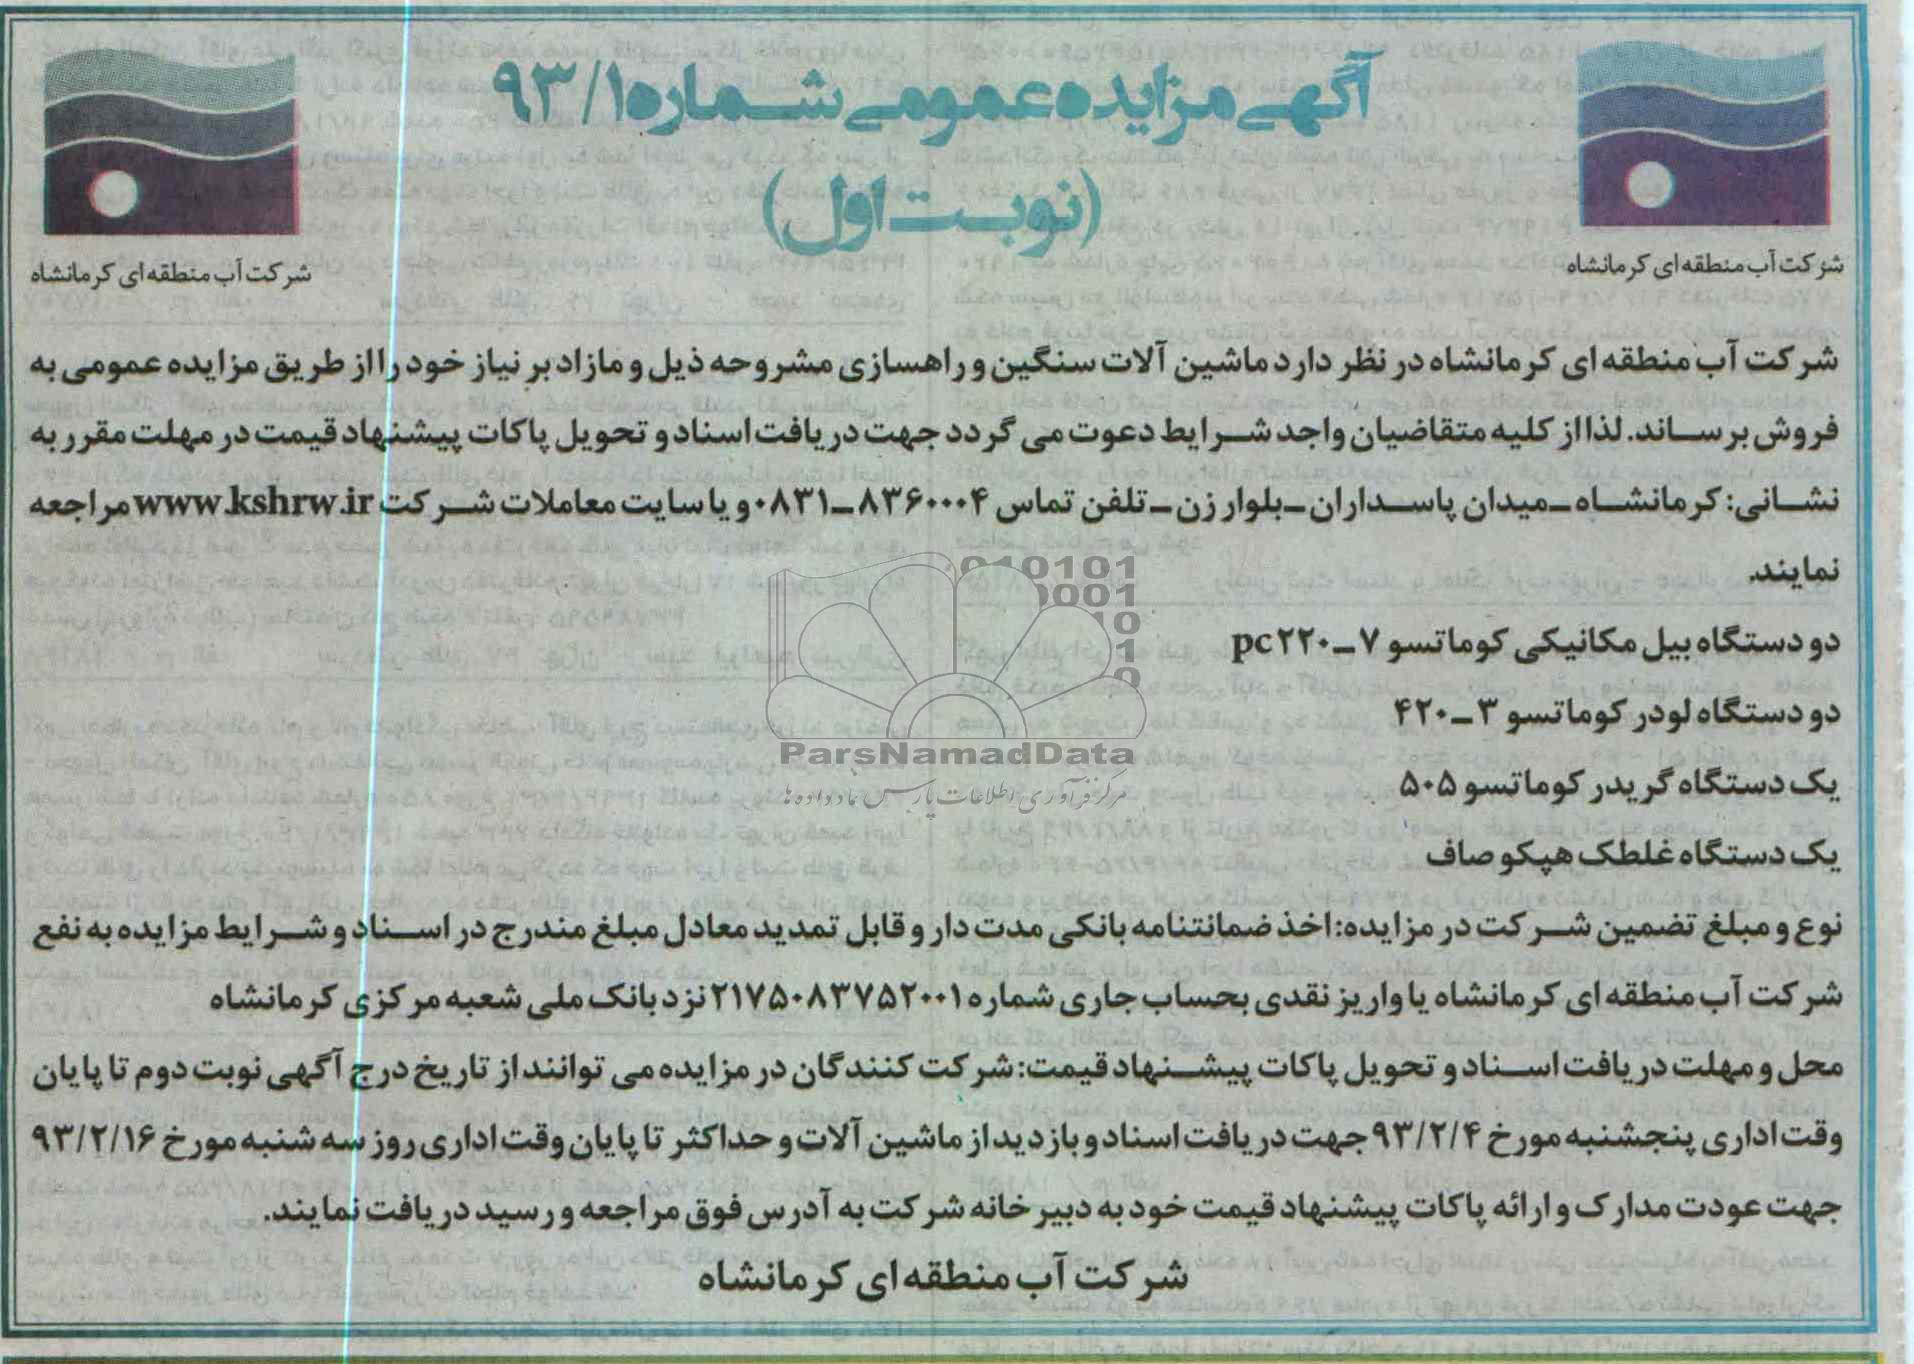 آگهی مزایده عمومی شماره ۹۳/۱
(نوبت اول)
شرکت آب منطقه ای کرمانشاه
شرکت آب منطقه ای کرمانشاه
شرکت آب منطقه ای کرمانشاه در نظر دارد ماشین آلات سنگین و راهسازی مشروحه ذیل و مازاد بر نیاز خود را از طریق مزایده عمومی به
فروش برساند. لذا از کلیه متقاضیان واجد شرایط دعوت می گردد جهت دریافت اسناد و تحویل پاکات پیشنهاد قیمت در مهلت مقرر به
نشانی: کرمانشاه ـ میدان پاسداران ـ بلوار زن ـ تلفن تماس ۸۳۶۰۰۰۴ـ۰۸۳۱ و یا سایت معاملات شرکت www.kshrw.ir مراجعه
نمایند.
دو دستگاه بیل مکانیکی کوماتسو ۷ـpc۲۲۰
دو دستگاه لودر کوماتسو ۳ـ۴۲۰
یک دستگاه گریدر کوماتسو ۵۰۵
یک دستگاه غلطک هپکو صاف
نوع و مبلغ تضمین شرکت در مزایده: اخذ ضمانتنامه بانکی مدت دار و قابل تمدید معادل مبلغ مندرج در اسناد و شرایط مزایده به نفع
شرکت آب منطقه ای کرمانشاه یا واریز نقدی بحساب جاری شماره ۲۱۷۵۰۸۳۷۵۲۰۰۱ نزد بانک ملی شعبه مرکزی کرمانشاه
محل و مهلت دریافت اسناد و تحویل پاکات پیشنهاد قیمت: شرکت کنندگان در مزایده می توانند از تاریخ درج آگهی نوبت دوم تا پایان
وقت اداری پنجشنبه مورخ ۹۳/۲/۴ جهت دریافت اسناد و بازدید از ماشین آلات و حداکثر تا پایان وقت اداری روز سه شنبه مورخ ۹۳/۲/۱۶
جهت عودت مدارک و ارائه پاکات پیشنهاد قیمت خود به دبیرخانه شرکت به آدرس فوق مراجعه و رسید دریافت نمایند.
شرکت آب منطقه ای کرمانشاه
ParsNamadData
مرکز فرآوری اطلاعات پارس نماد داده ها